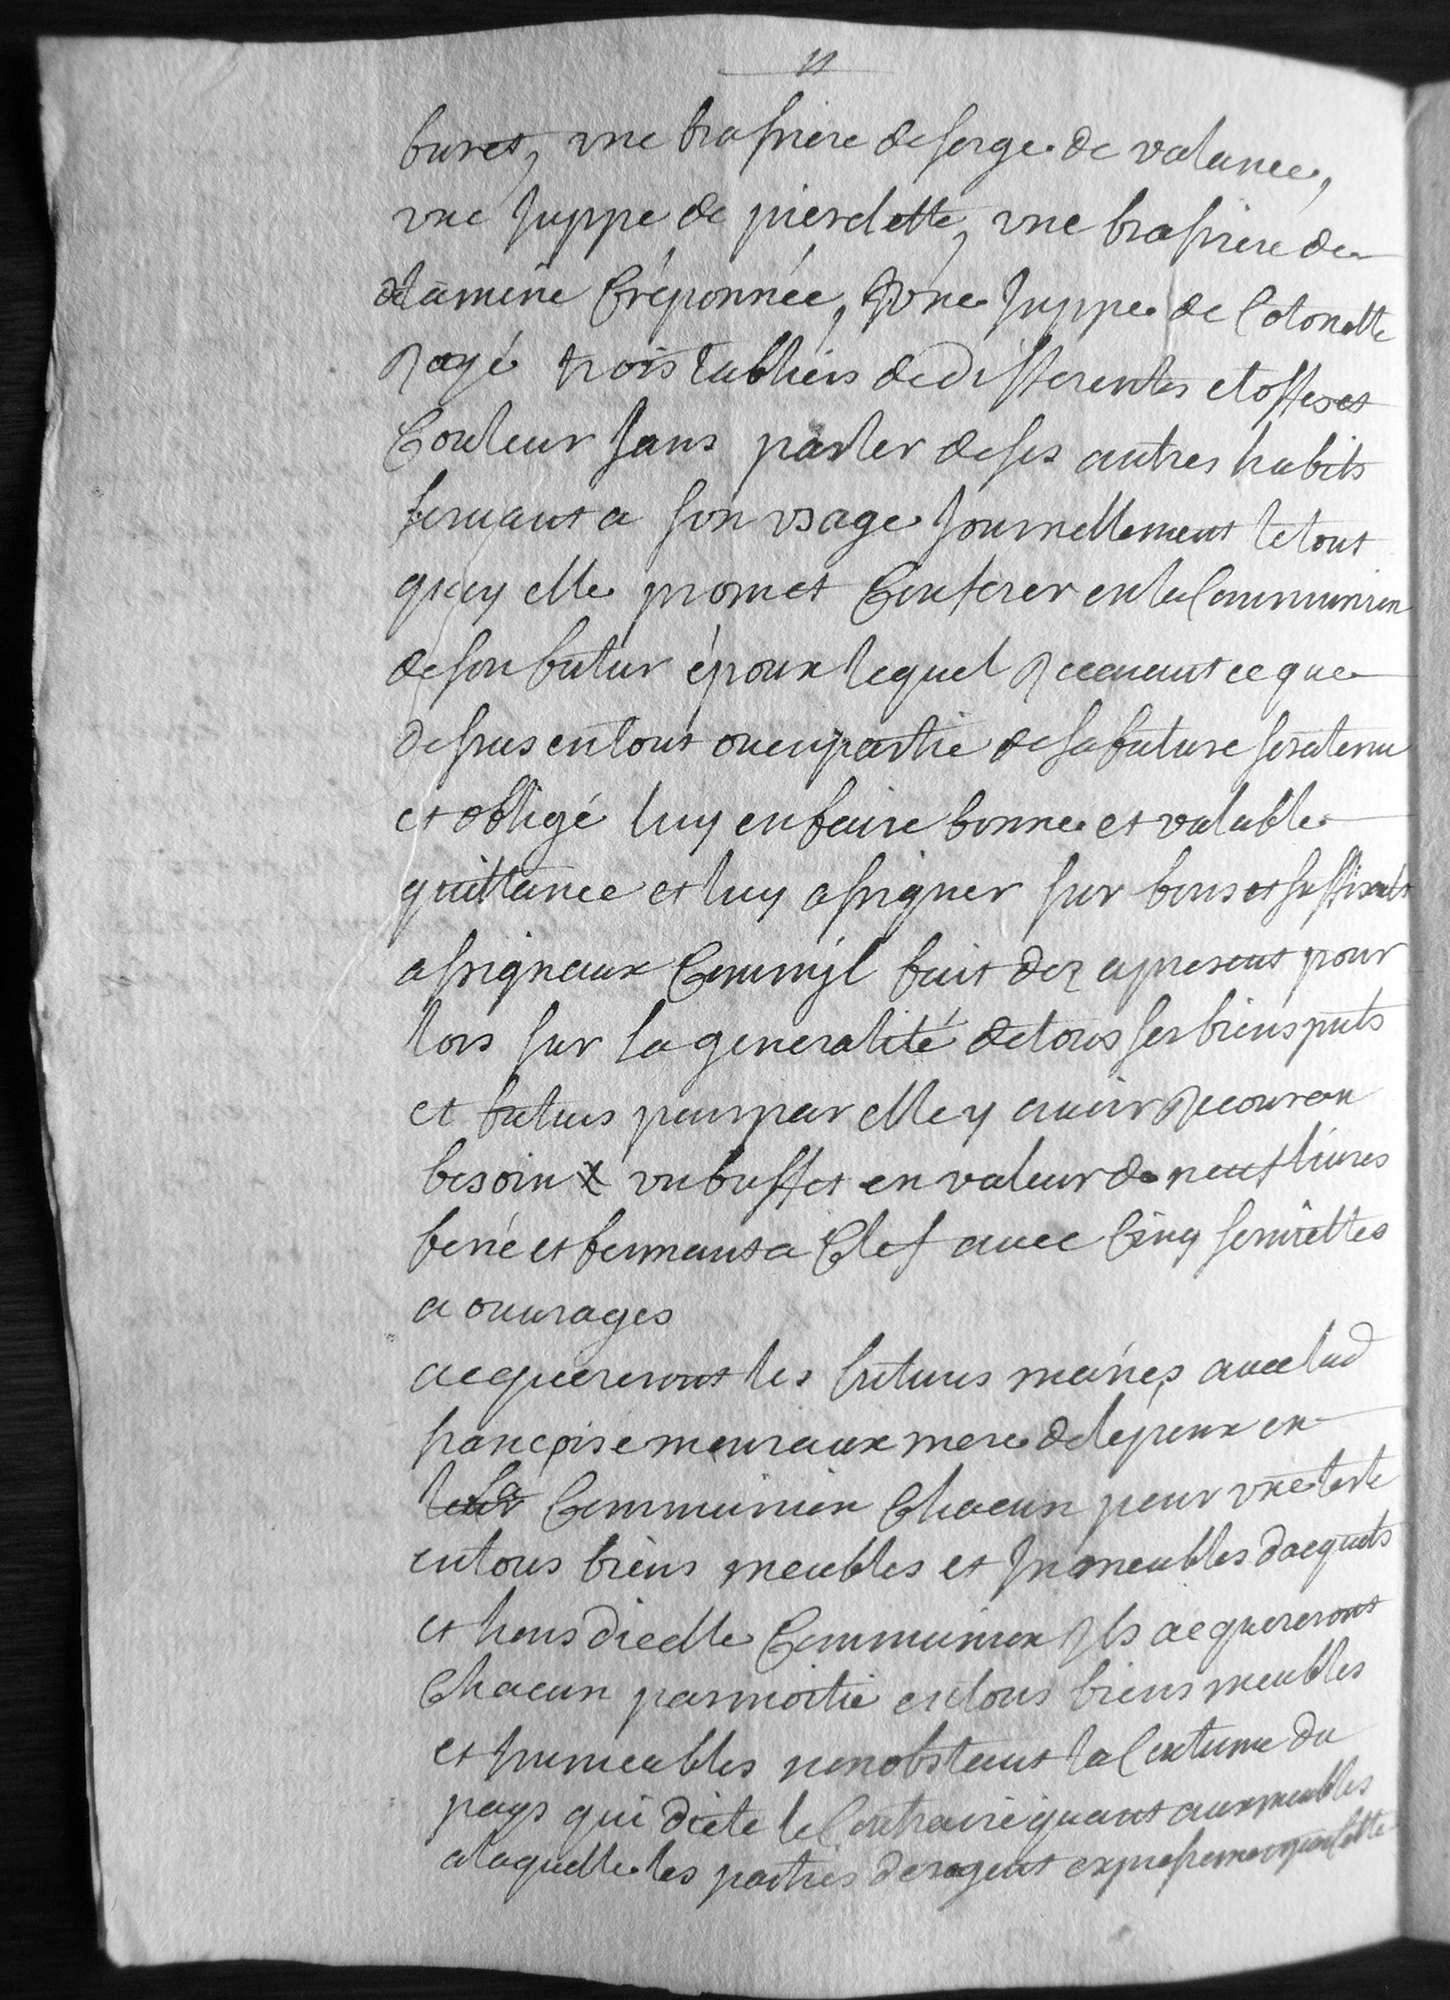 11
buret, une brassiere de serge de valance,
une juppe de pierdette, une brassiere de
etamine créponnée, une juppe de Cotonette
rayé trois tabliers de differentes etoffes et
Couleur sans parler de ses autres habits
servant a son usage journellement le tout
quoy elle promet Conferer en la Communion
de son futur époux lequel recevant ce que
dessus en tout ou en partie de sa future sera tenu
et obligé luy en faire bonne et valable
quittance et luy assigner sur bons et suffisants
assignaux Comm'jl fait dez apresent pour
lors sur la generalité de tous ses biens pnts
et futurs pour par elle y avoir recour au
besoin X un buffet en valeur de neuf livres
feré et fermant a Clef avec Cinq serviettes
a ouvrages
acquereront les futurs mariés avec lad
françoise mouraux mere de l'epoux en
la Communion Chacun pour une teste
en tous biens meubles et Immeubles d'acquets
et hors d'icelle Communion Ils acquereront
Chacun par moitié en tous biens meubles
et Immeubles nonobstant la Coutume du
pays qui dicte le Contraire quant aux meubles
a laquelle les parties derogent expressement